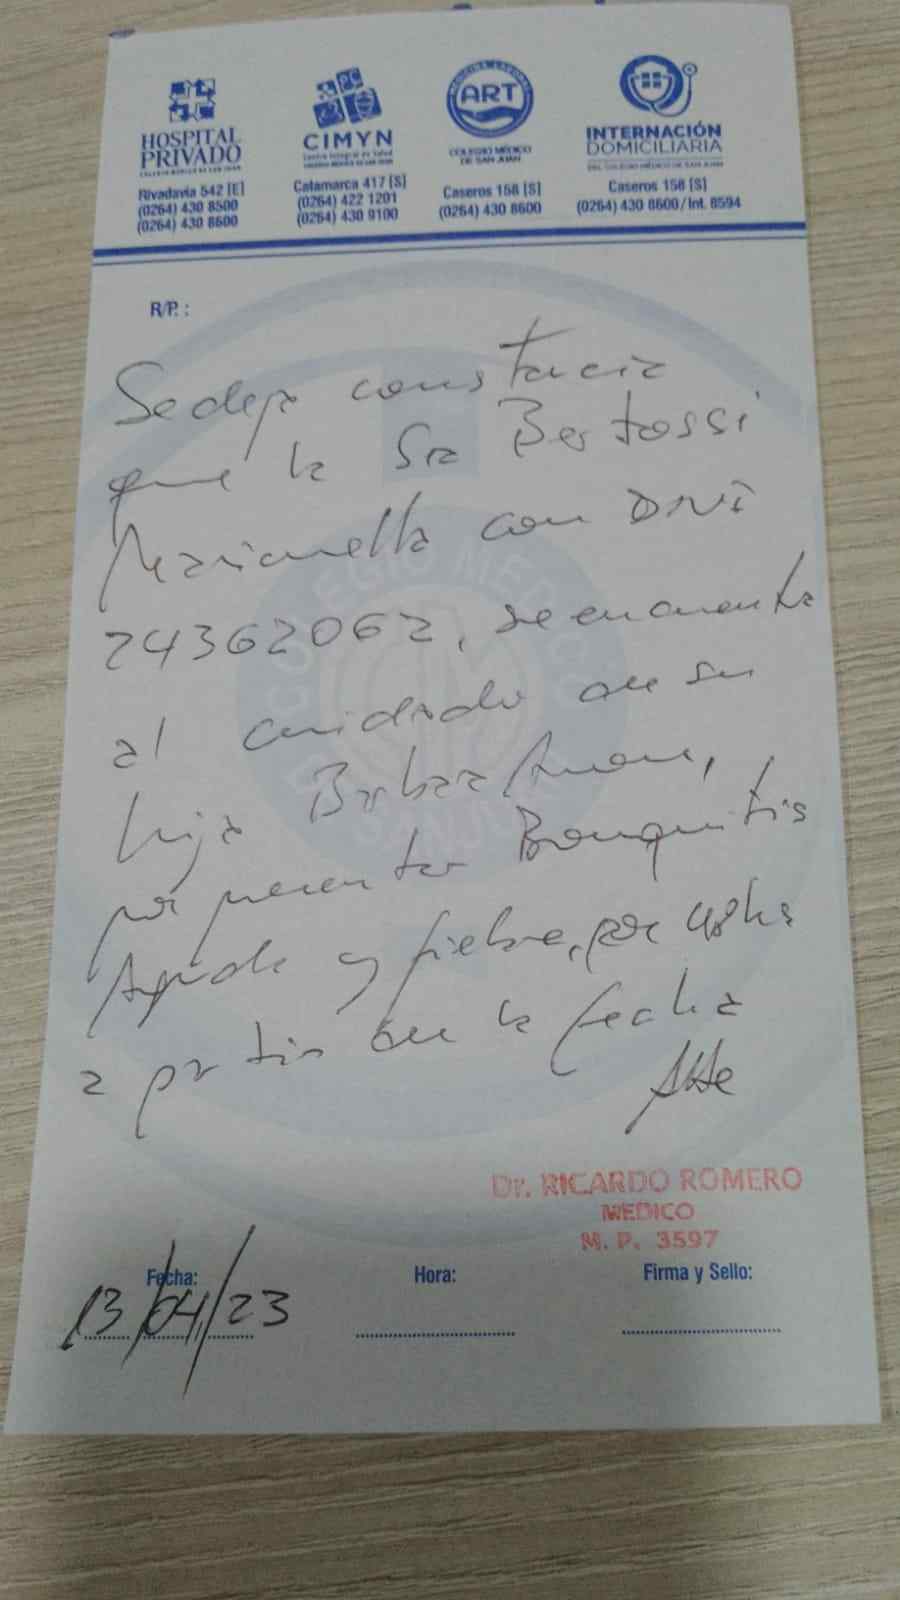 HOSPITAL
PRIVADO
COLEGIO MÉDICO DE SAN JUAN
Rivadavia 542 [E]
(0264) 430 8500
(0264) 430 8600
CIMYN
Centro Integral de Salud
COLEGIO MÉDICO DE SAN JUAN
Catamarca 417 [S]
(0264) 422 1201
(0264) 430 9100
MEDICINA LABORAL
ART
COLEGIO MÉDICO
DE SAN JUAN
Caseros 158 [S]
(0264) 430 8600
INTERNACIÓN
DOMICILIARIA
DEL COLEGIO MÉDICO DE SAN JUAN
Caseros 158 [S]
(0264) 430 8600/Int. 8594
R/P. :
Se deja constacia
que la Sra Bertossi
Marianella con DNI
24362062, se encuentra
al cuidado de su
hija Barbara
por presentar Bronquitis
Aguda y fiebre, por 48hs
a partir de la fecha
Atte
COLEGIO MEDICO
SAN JUAN
Dr. RICARDO ROMERO
MEDICO
M. P. 3597
Fecha:
13/04/23
Hora:
Firma y Sello: